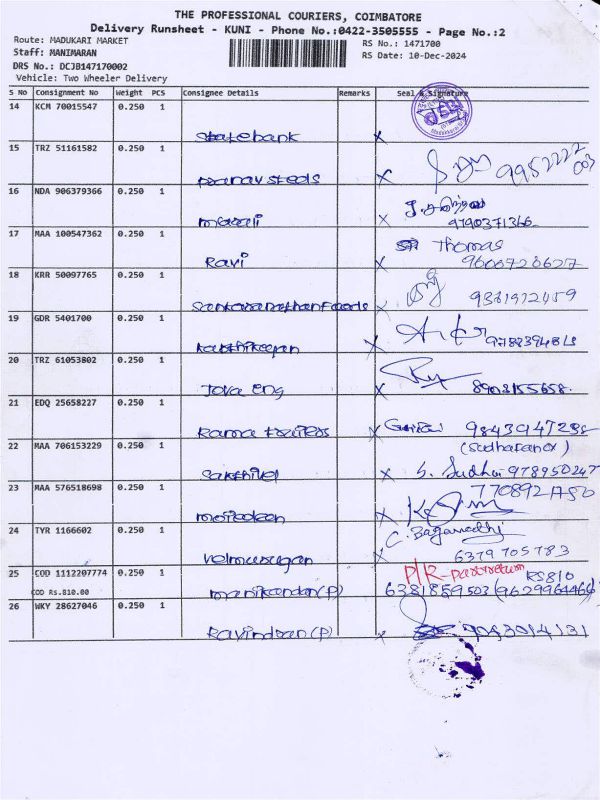 THE PROFESSIONAL COURIERS, COIMBATORE
Delivery Runsheet - KUNI - Phone No.:0422-3505555 - Page No.:2
Route: MADUKARI MARKET
RS No.: 1471700
Staff: MANIMARAN
RS Date: 10-Dec-2024
DRS No.: DCJB147170002
Vehicle: Two Wheeler Delivery
S No Consignment No Weight PCS Consignee Details Remarks Seal & Signature
14 KCM 70015547 0.250 1
State bank X
15 TRZ 51161582 0.250 1
X 9952222
003
16 NDA 906379366 0.250 1
X 9790371366
17 MAA 100547362 0.250 1
Thomas
Ravi X 9600720627
18 KRR 50097765 0.250 1
19 GDR 5401700 0.250 1
Karthikeyan X
20 TRZ 61053802 0.250 1
Jova eng X 8903155658
21 EDQ 25658227 0.250 1
Rama X
(Sudharano)
22 MAA 706153229 0.250 1
Sakthivel X S. Sudha 978950247
23 MAA 576518698 0.250 1
X
24 TYR 1166602 0.250 1
Velmurugan X 6379705783
25 COD 1112207774 0.250 1
P/R- RS810
COD Rs.810.00
Manikandan (P) 6381859503 (9629964466)
26 WKY 28627046 0.250 1
Ravindran (P) 9043014131